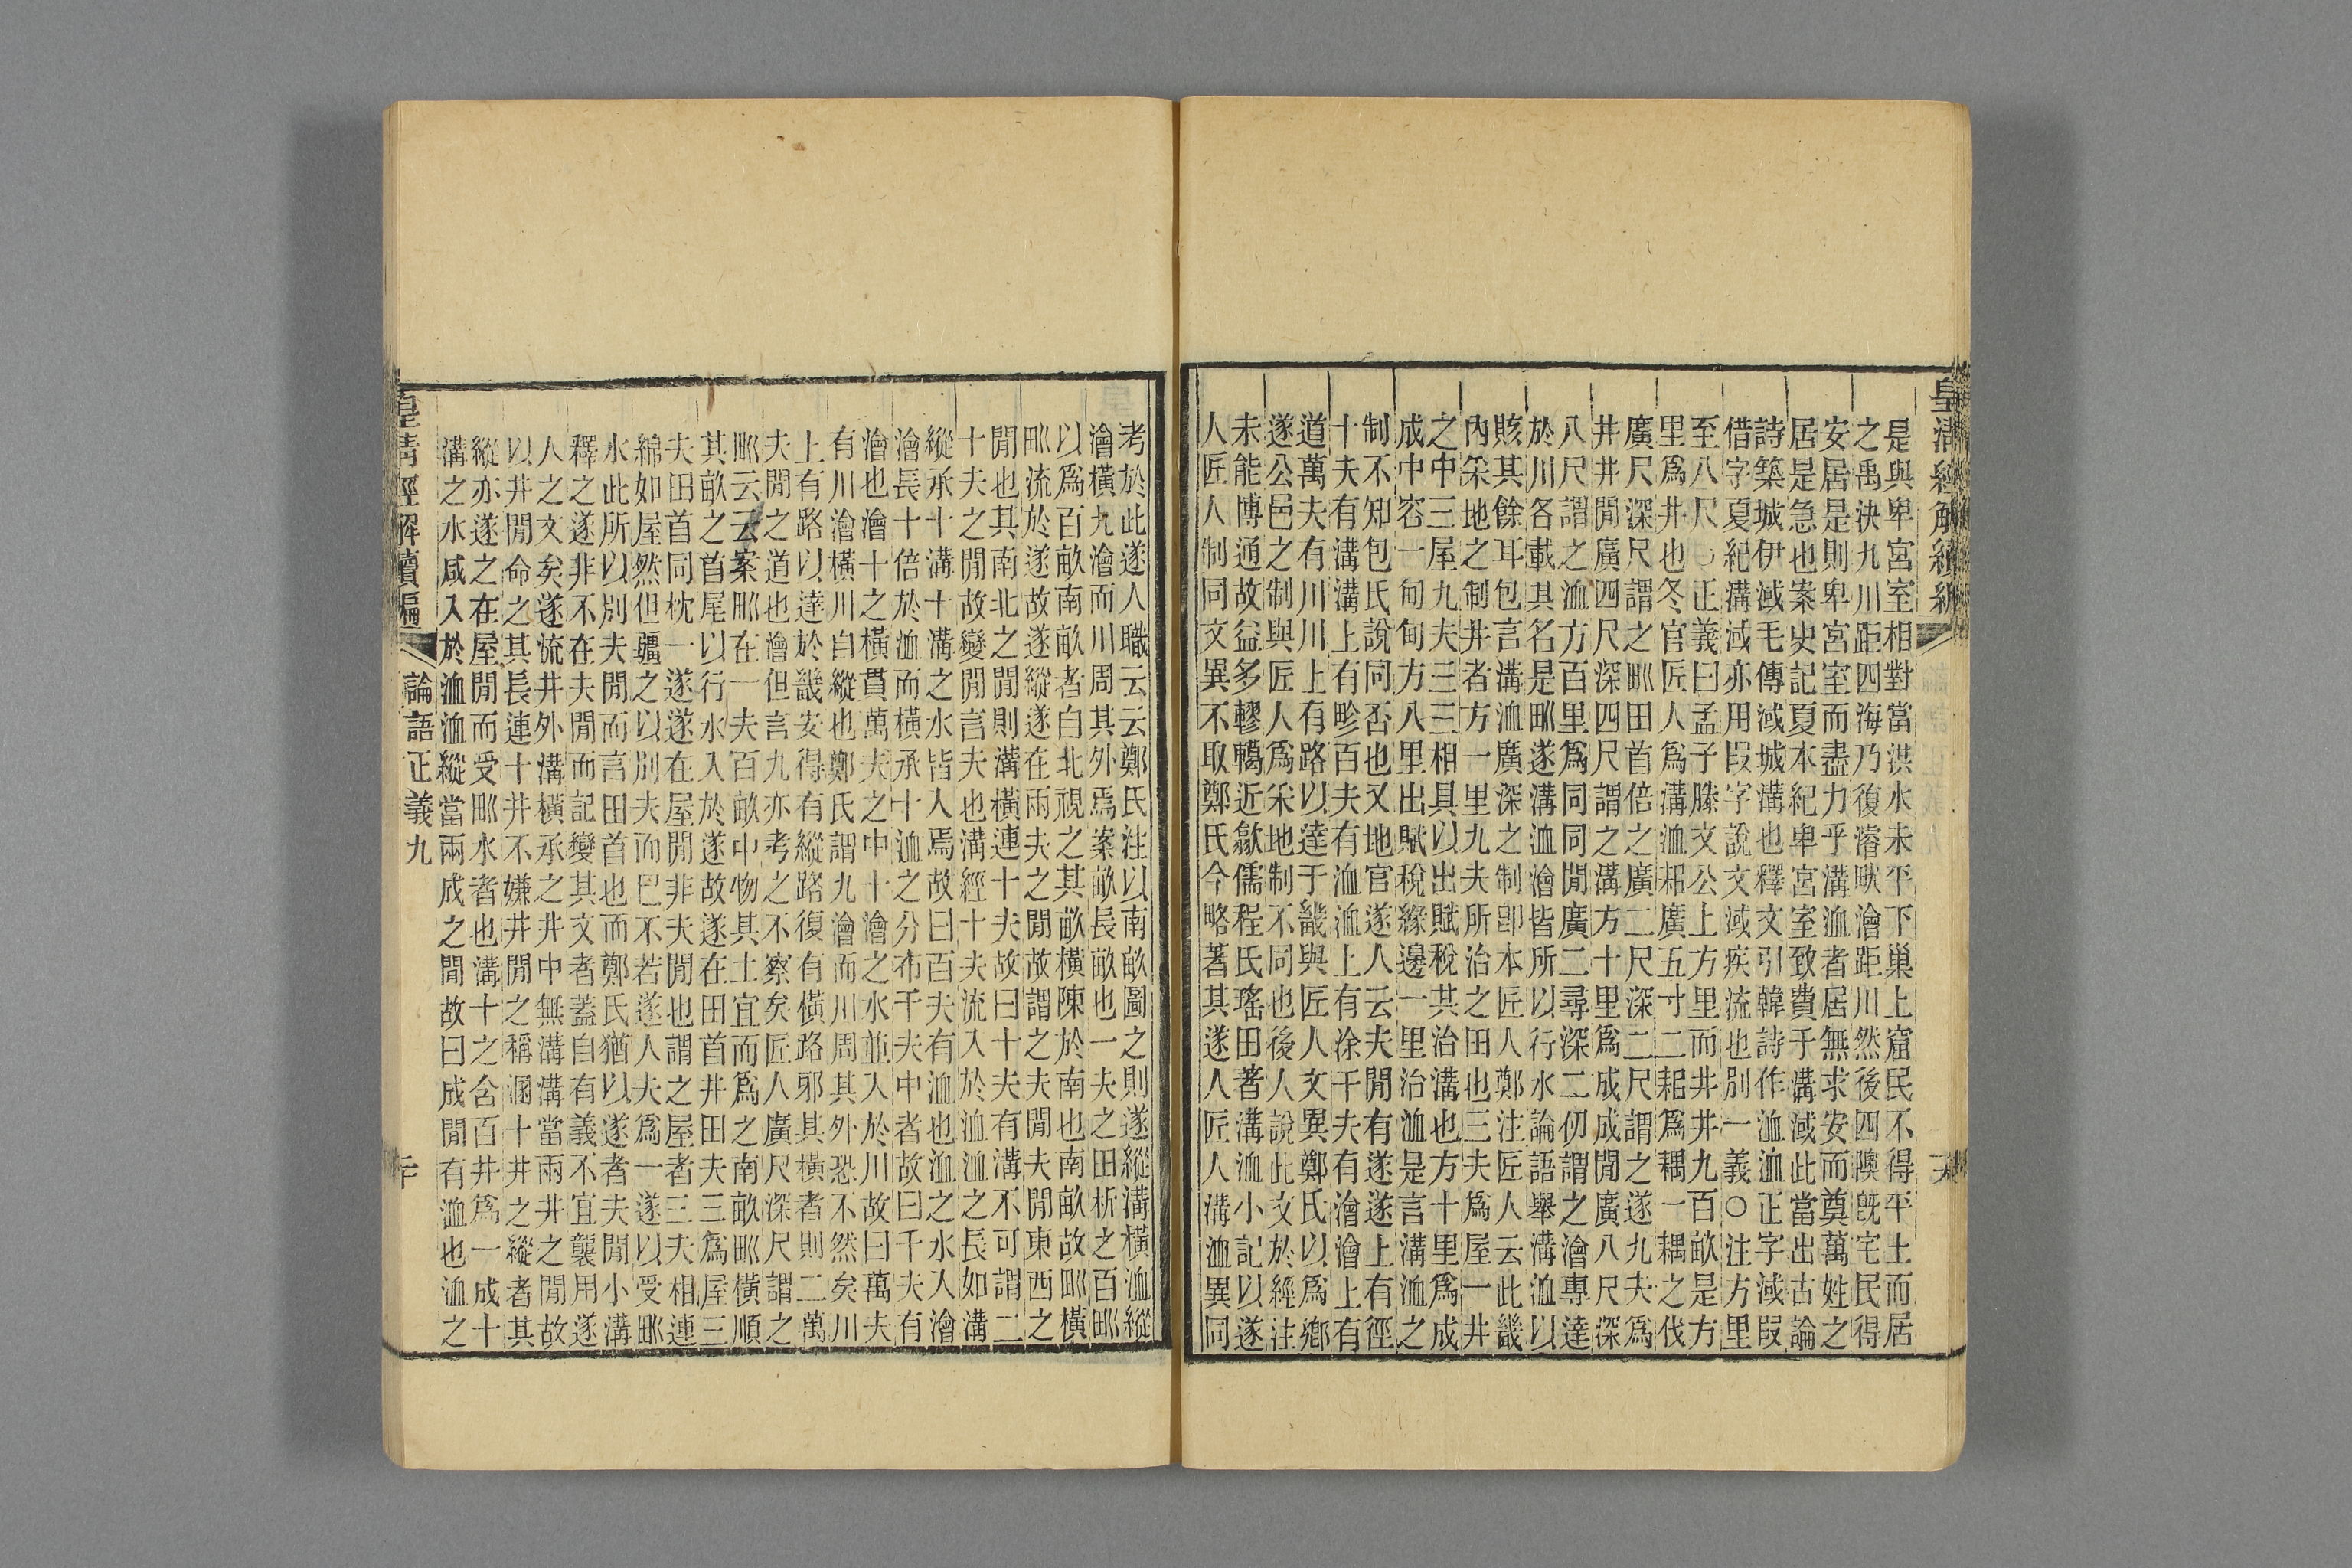 是與卑宮室相對當洪水未平下巢上窟民不得平土而居
之禹決九川距四海乃復濬畎澮距川然後四隩既宅民得
安居是則卑宮室而盡力乎溝洫者居無求安而奠萬姓之
居是急也案史記夏本紀卑宮室致費于溝淢此當出古論
詩築城伊淢毛傳淢城溝也釋文引韓詩作洫洫正字淢叚
借字夏紀溝淢亦用叚字說文淢疾流也別一義○注方里
至八尺○正義曰孟子滕文公上方里而井井九百畝是方
里爲井也冬官匠人爲溝洫耜廣五寸二耜爲耦一耦之伐
廣尺深尺謂之甽田首倍之廣二尺深二尺謂之遂九夫爲
井井閒廣四尺深四尺謂之溝方十里爲成成閒廣八尺深
八尺謂之洫方百里爲同同閒廣二尋深二仞謂之澮專達
於川各載其名是甽遂溝洫澮皆所以行水論語舉溝洫以
賅其餘耳包言溝洫廣深之制卽本匠人鄭注匠人云此畿
內采地之制井者方一里九夫所治之田也三夫爲屋一井
之中三屋九夫三三相具以出賦稅其治溝也方十里爲成
成中容一甸甸方八里出賦稅緣邊一里治洫是言溝洫之
制不知包氏說同否也又地官遂人云夫閒有遂遂上有徑
十夫有溝溝上有畛百夫有洫洫上有涂千夫有澮澮上有
道萬夫有川川上有路以達于畿與匠人文異鄭氏以爲鄉
遂公邑之制與匠人爲采地制不同也後人說此文於經注
未能博通故益多轇轕近歙儒程氏瑤田著溝洫小記以遂
人匠人制同文異不取鄭氏今略著其遂人匠人溝洫異同
考於此遂人職云云鄭氏注以南畝圖之則遂縱溝橫洫縱
澮橫九澮而川周其外焉案畝長畝也一夫之田析之百甽
以爲百畝南畝者自北視之其畝橫陳於南也南畝故甽橫
甽流於遂故遂縱遂在兩夫之閒故謂之夫閒夫閒東西之
閒也其南北之閒則溝橫連十夫故曰十夫有溝不可謂二
十夫之閒故變閒言夫也溝經十夫流入於洫洫之長如溝
縱承十溝十溝之水皆入焉故曰百夫有洫也洫之水入澮
澮長十倍於洫而橫承十洫之分布千夫中者故曰千夫有
澮也澮十之橫貫萬夫之中十澮之水並入於川故曰萬夫
有川澮橫川自縱也鄭氏謂九澮而川周其外恐不然矣川
上有路以達於畿安得有縱路復有橫路邪其橫者則二萬
夫閒之道也澮但言九亦考之不察矣匠人廣尺深尺謂之
甽云云案甽在一夫百畝中物其土宜而爲之南畝甽橫順
其畝之首尾以行水入於遂故遂在田首井田夫三爲屋三
夫田首同枕一遂遂在屋閒非夫閒也謂之屋者三夫相連
綿如屋然但疆之以別夫而已不若遂人夫爲一遂以受甽
水此所以別夫閒而言田首也而鄭氏猶以遂者夫閒小溝
釋之遂非不在夫閒而記變其文者蓋自有義不宜襲用遂
人之文矣遂流井外溝橫承之井中無溝溝當兩井之閒故
以井閒命之其長連十井不嫌井閒之稱溷十井之縱者其
縱亦遂之在屋閒而受甽水者也溝十之含百井爲一成十
溝之水咸入於洫洫縱當兩成之閒故曰成閒有洫也洫之
皇清經解續編 論語正義九 二十